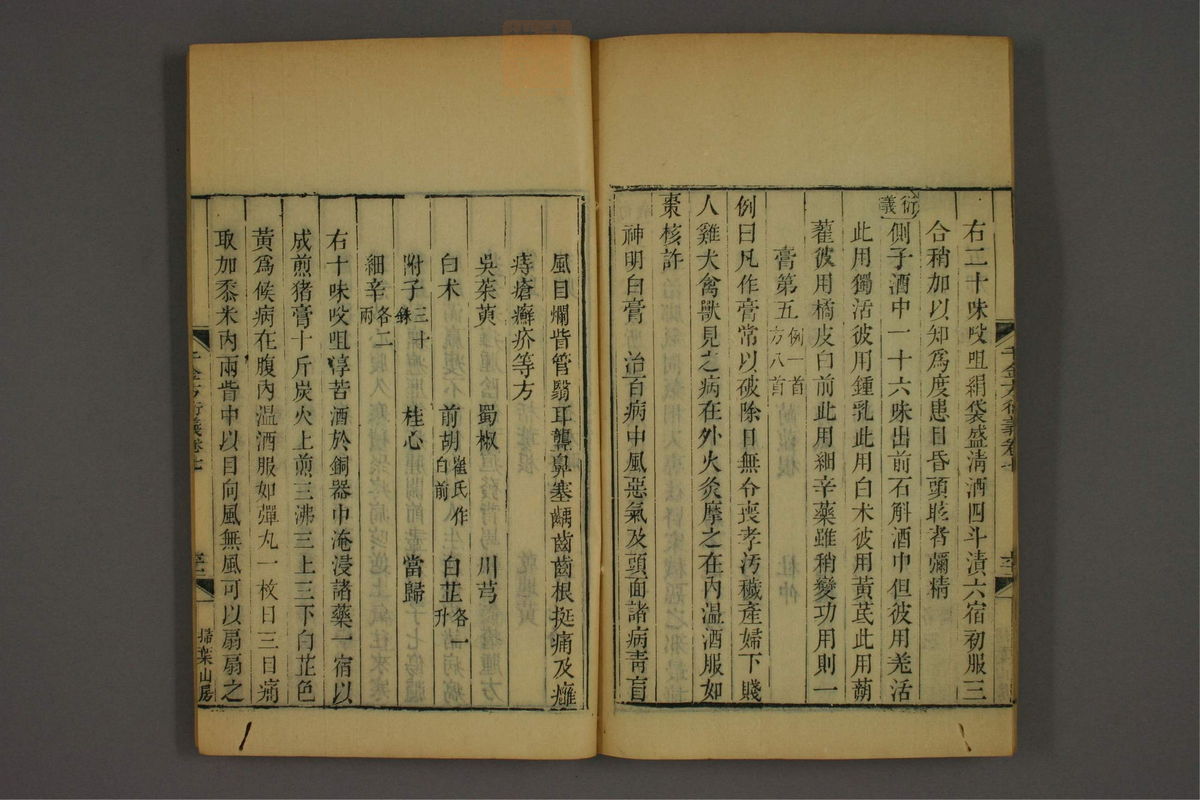 右二十味㕮咀絹袋盛清酒四斗漬六宿初服三
合稍加以知爲度患目昏頭眩者彌精
衍義
側子酒中一十六味出前石斛酒中但彼用羌活
此用獨活彼用鍾乳此用白术彼用黃芪此用萠
藋彼用橘皮白前此用細辛藥雖稍變功用則一
膏第五例一首方八首
例曰凡作膏常以破除日無令喪孝污穢產婦下賤
人雞犬禽獸見之病在外火灸摩之在內溫酒服如
棗核許
神明白膏 治百病中風惡氣及頭面諸病青盲
風目爛眥管翳耳聾鼻塞齲齒齒根挺痛及癰
痔瘡癬疥等方
吳茱萸 蜀椒 川芎
白术 前胡崔氏作白前 白芷各一升
附子三十銖 桂心 當歸
細辛各二兩
右十味㕮咀淳苦酒於銅器中淹浸諸藥一宿以
成煎猪膏十斤炭火上煎三沸三上三下白芷色
黃爲候病在腹內溫酒服如彈丸一枚日三目痛
取加黍米內兩眥中以目向風無風可以扇扇之
千金方衍義卷七
掃葉山房